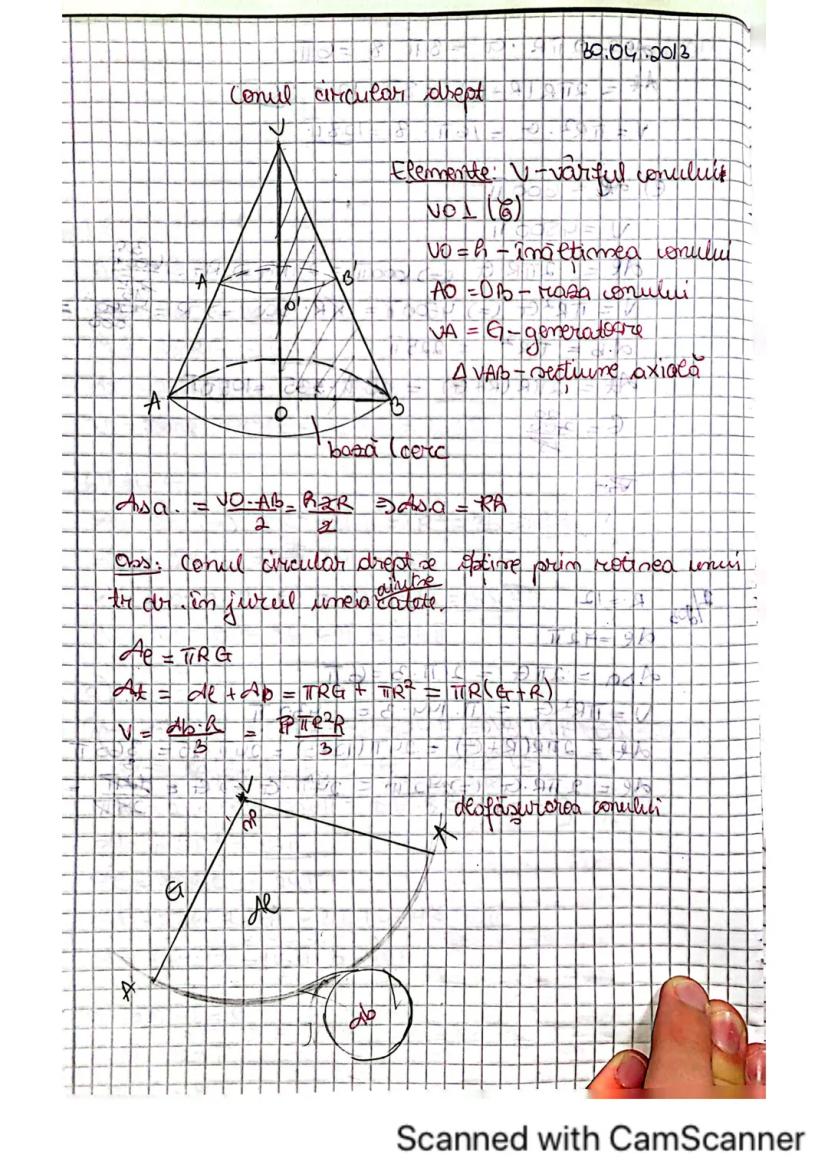 30.04.2013
Conul circular drept
V
Elemente: V - vârful conului
VO ⊥ (C)
VO = h - înălțimea conului
A B'
AO = OB - raza conului
O'
VA = G - generatoare
Δ VAB - secțiune axială
A O B
bază (cerc
Asa. = VO·AB/2 = h2R/2 ⇒ As.a = Rh
Obs: Conul circular drept se obține prin rotirea unui
tr dr. în jurul uneia catete.
Al = πRG
At = Al + Ab = πRG + πR² = πR(G+R)
V = Ab·h/3 = πR²h/3
V
desfășurarea conului
A
G
Al
A
Ab
Scanned with CamScanner